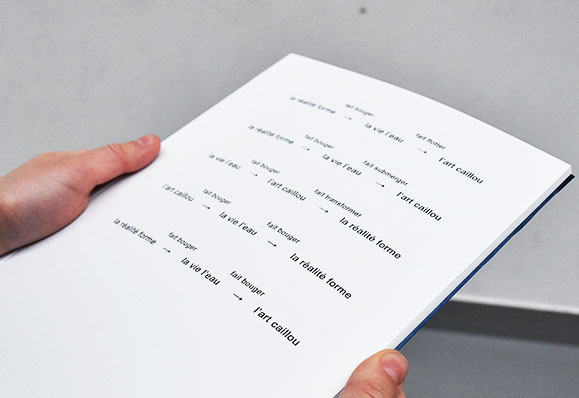 la réalité forme fait bouger → la vie l'eau fait flotter → l'art caillou
la réalité forme fait bouger → la vie l'eau fait submerger → l'art caillou
la vie l'eau fait bouger → l'art caillou fait transformer → la réalité forme
l'art caillou fait bouger → la vie l'eau fait bouger → la réalité forme
la réalité forme fait bouger → la vie l'eau fait bouger → l'art caillou